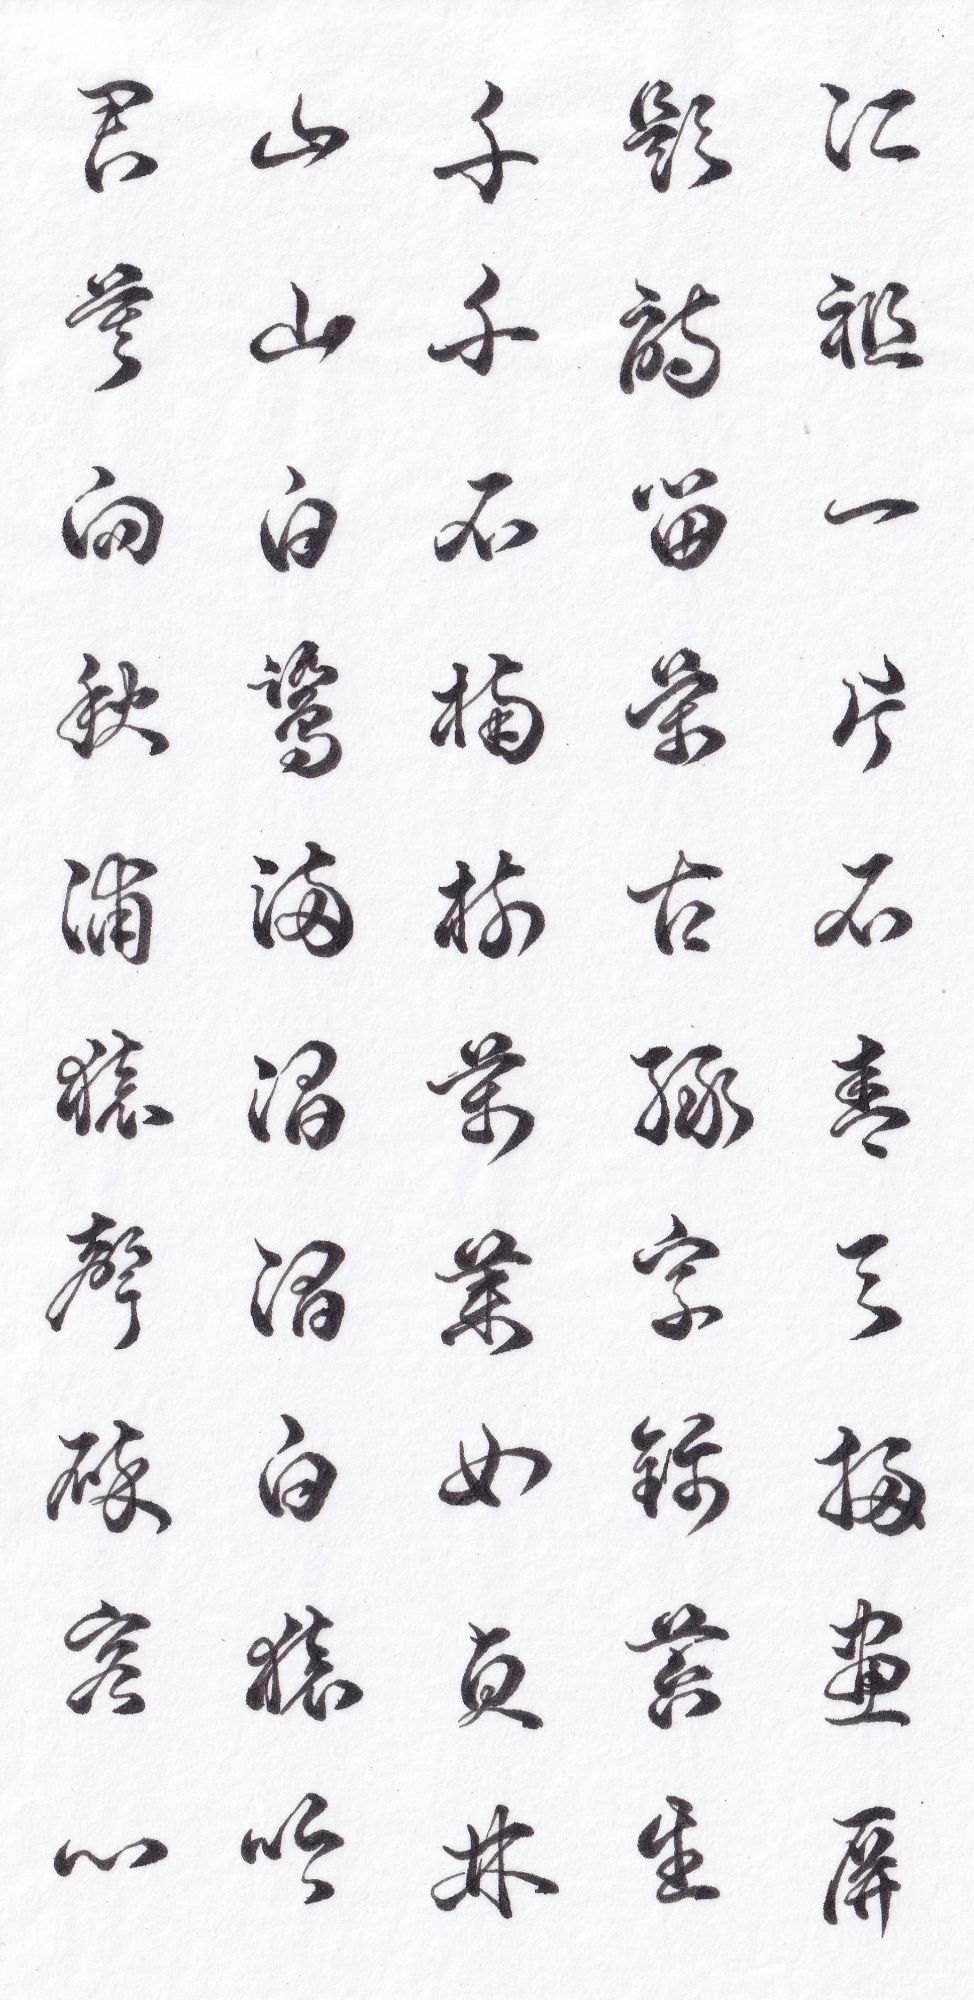 江祖一片石青天掃畫屏
題詩留萬古綠字錦苔生
千千石楠樹萬萬女貞林
山山白鷺滿澗澗白猿吟
君莫向秋浦猿聲碎客心